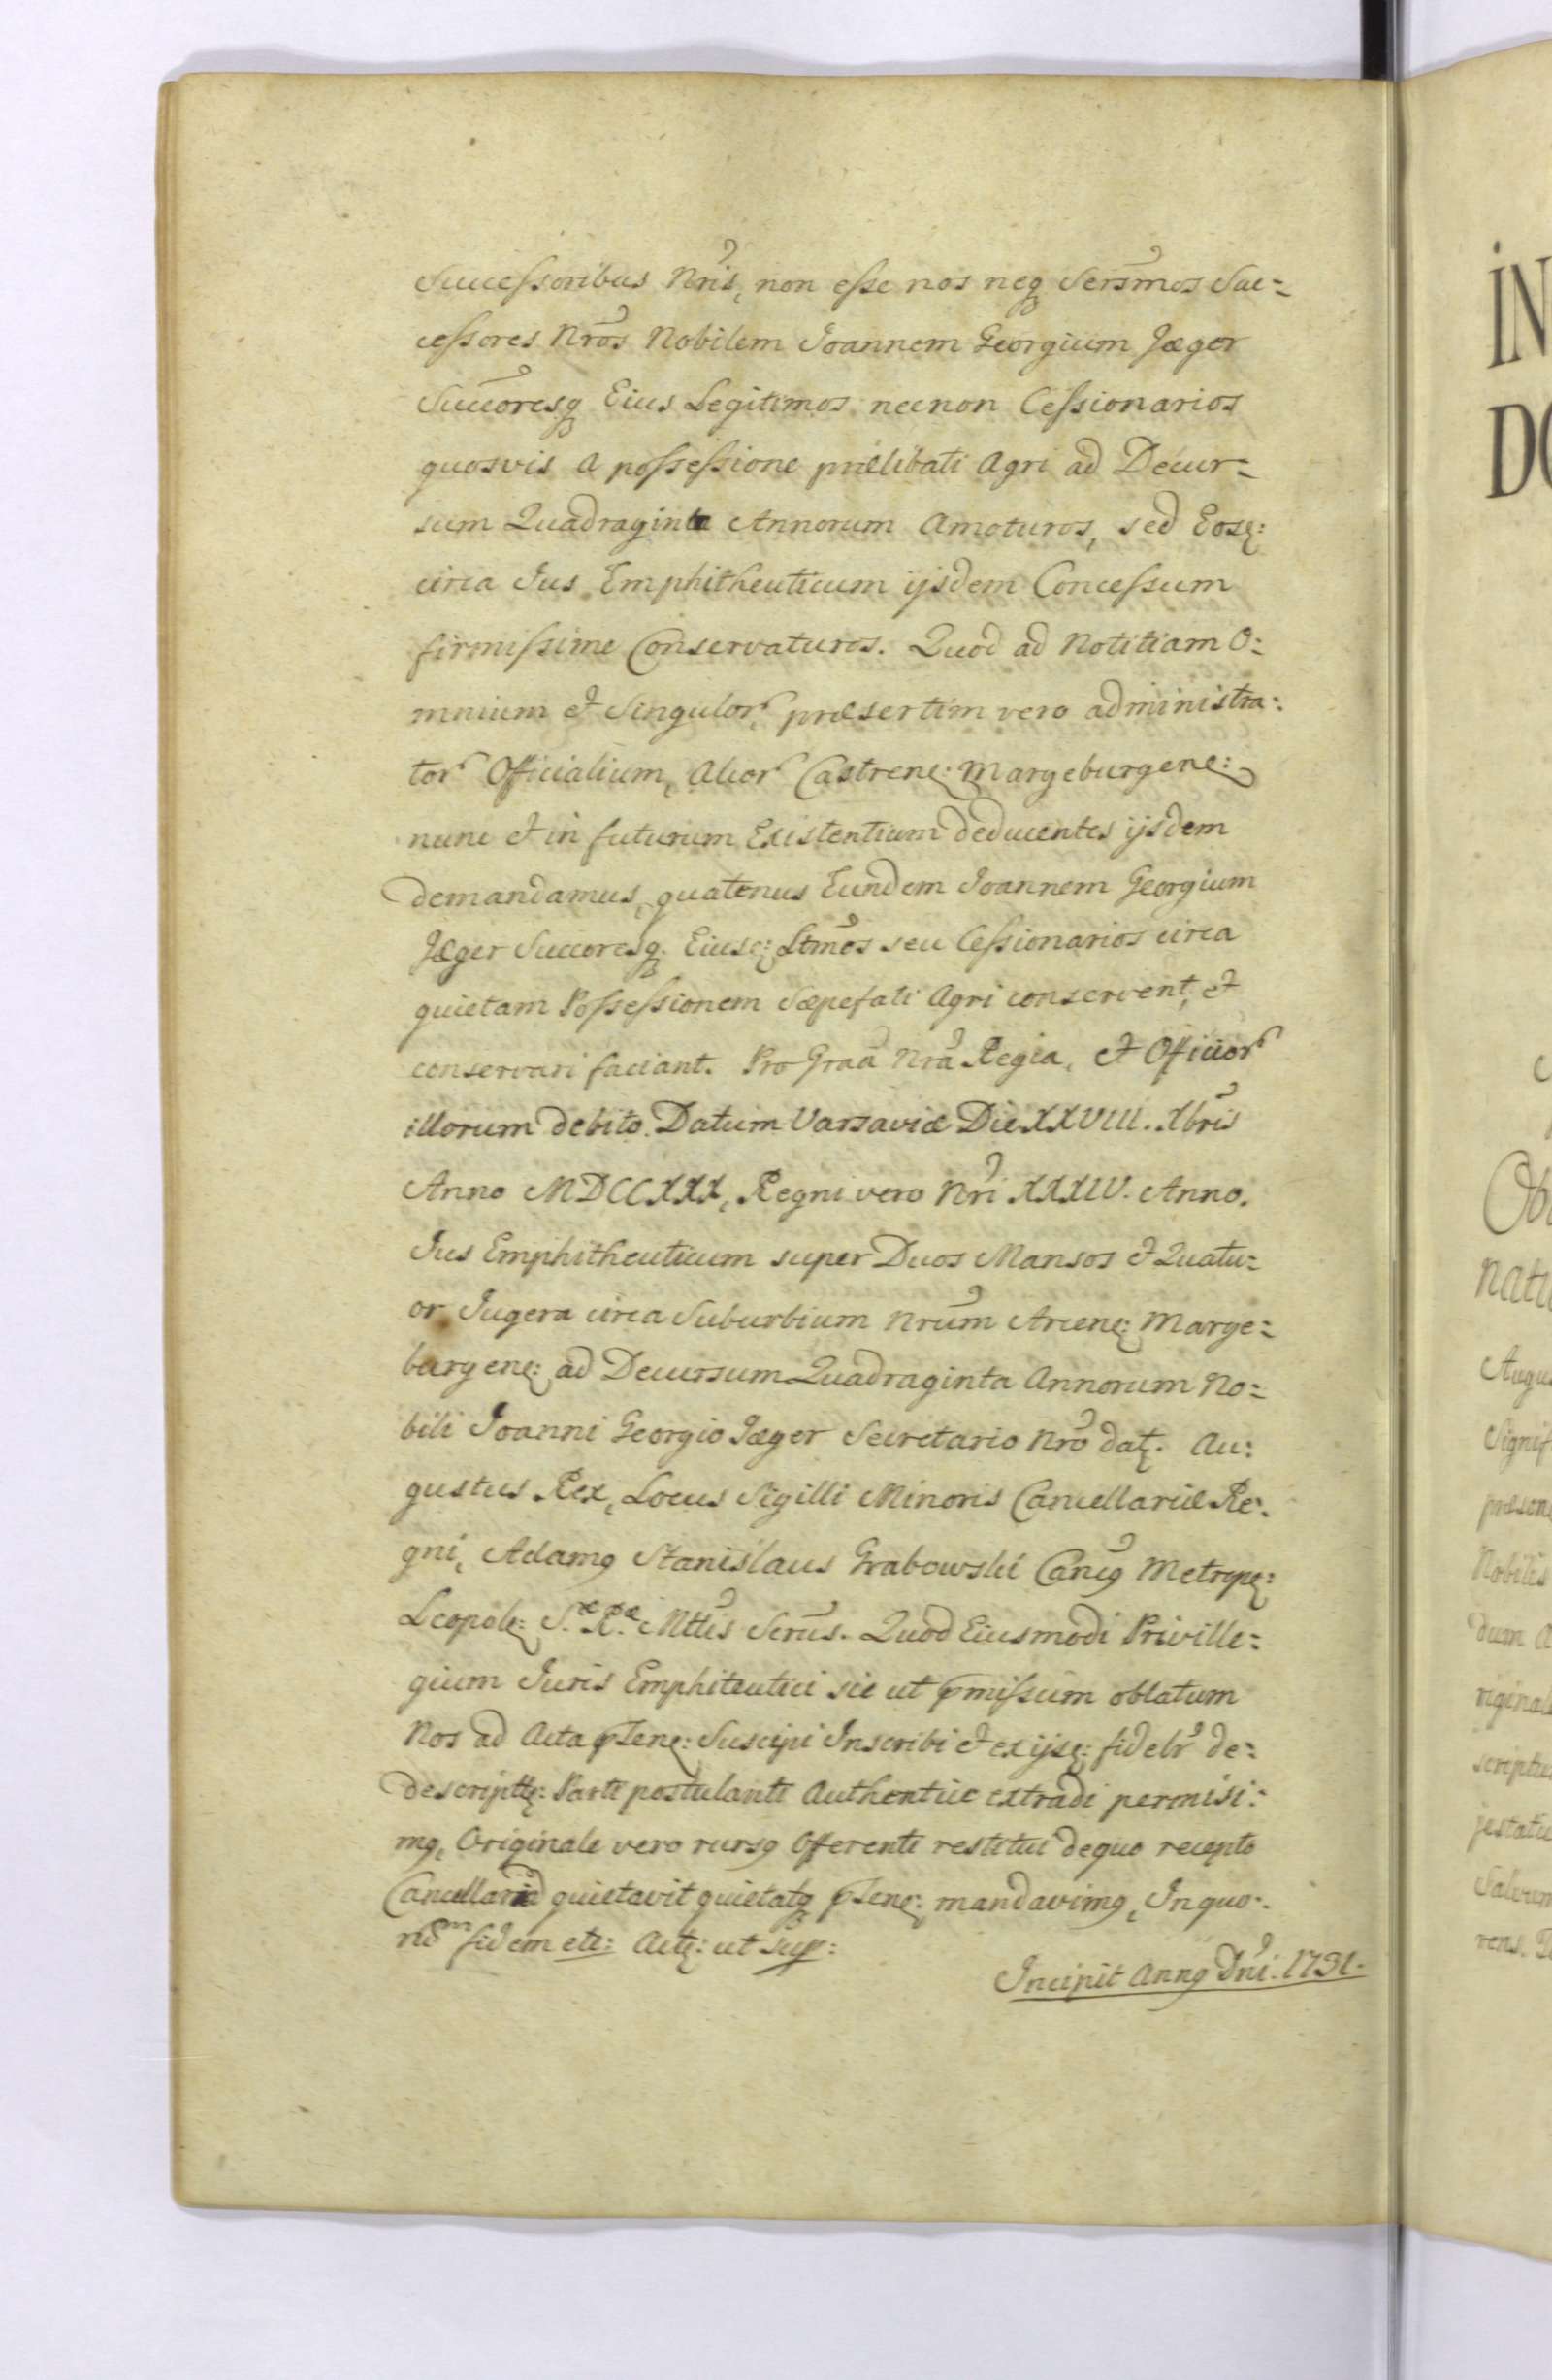 Successoribus Nris, non esse nos neq Sersmos Suc=
cessores Nros Nobilem Joannem Georgium Jæger
Succoresq Eius Legitimos necnon Cessionarios
quosvis a possessione prælibati Agri ad Decur=
sum Quadraginta Annorum Amoturos, sed Eosę:
circa Jus Emphitheuticum ijsdem Concessum
firmissime Conservaturos. Quod ad Notitiam O=
mnium et Singulor, præsertim vero administra=
tor Officialium, Alior Castrenę: Margeburgenę:
nunc et in futurum Existentium deducentes ijsdem
demandamus, quatenus Eundem Joannem Georgium
Jæger Succoresq. Eiusę: Ltmos seu Cessionarios circa
quietam Possessionem Sæpefati Agri conservent, et
conservari faciant. Pro Graa Nra Regia, et Officior
illorum debito. Datum Varsaviæ Die XXVIII. Xbris
Anno MDCCXXX, Regni vero Nri XXXIV. Anno.
Jus Emphitheuticum super Duos Mansos et Quatu=
or Jugera circa Suburbium Nrum Arcenę: Marge=
burgenę: ad Decursum Quadraginta Annorum No=
bili Joanni Georgio Jæger Secretario Nro datę. Au=
gustus Rex, Locus Sigilli Minoris Cancellariæ Re=
gni, Adamq Stanislaus Grabowski Cancq Metropę:
Leopolę: S.æ R.æ Mttis Scrus. Quod Eiusmodi Priville=
gium Juris Emphiteutici sic ut pmissum oblatum
Nos ad Acta psenę: Suscipi Inscribi et ex ijsę: fidelr de=
descripttę: Parti postulanti Authentice extradi permisi=
mq, Originale vero rursq Offerenti restitui de quo recepto
Cancellariã quietavit quietatq psenę: mandavimq, In quo=
rum fidem etc: Actę: ut sup:
Incipit Annq Dni. 1731.
IN
DO
Ob
Natu
Augu
Signif
præsen
Nobilis
dum a
riginal
scriptu
jestatu
Salvum
rens.